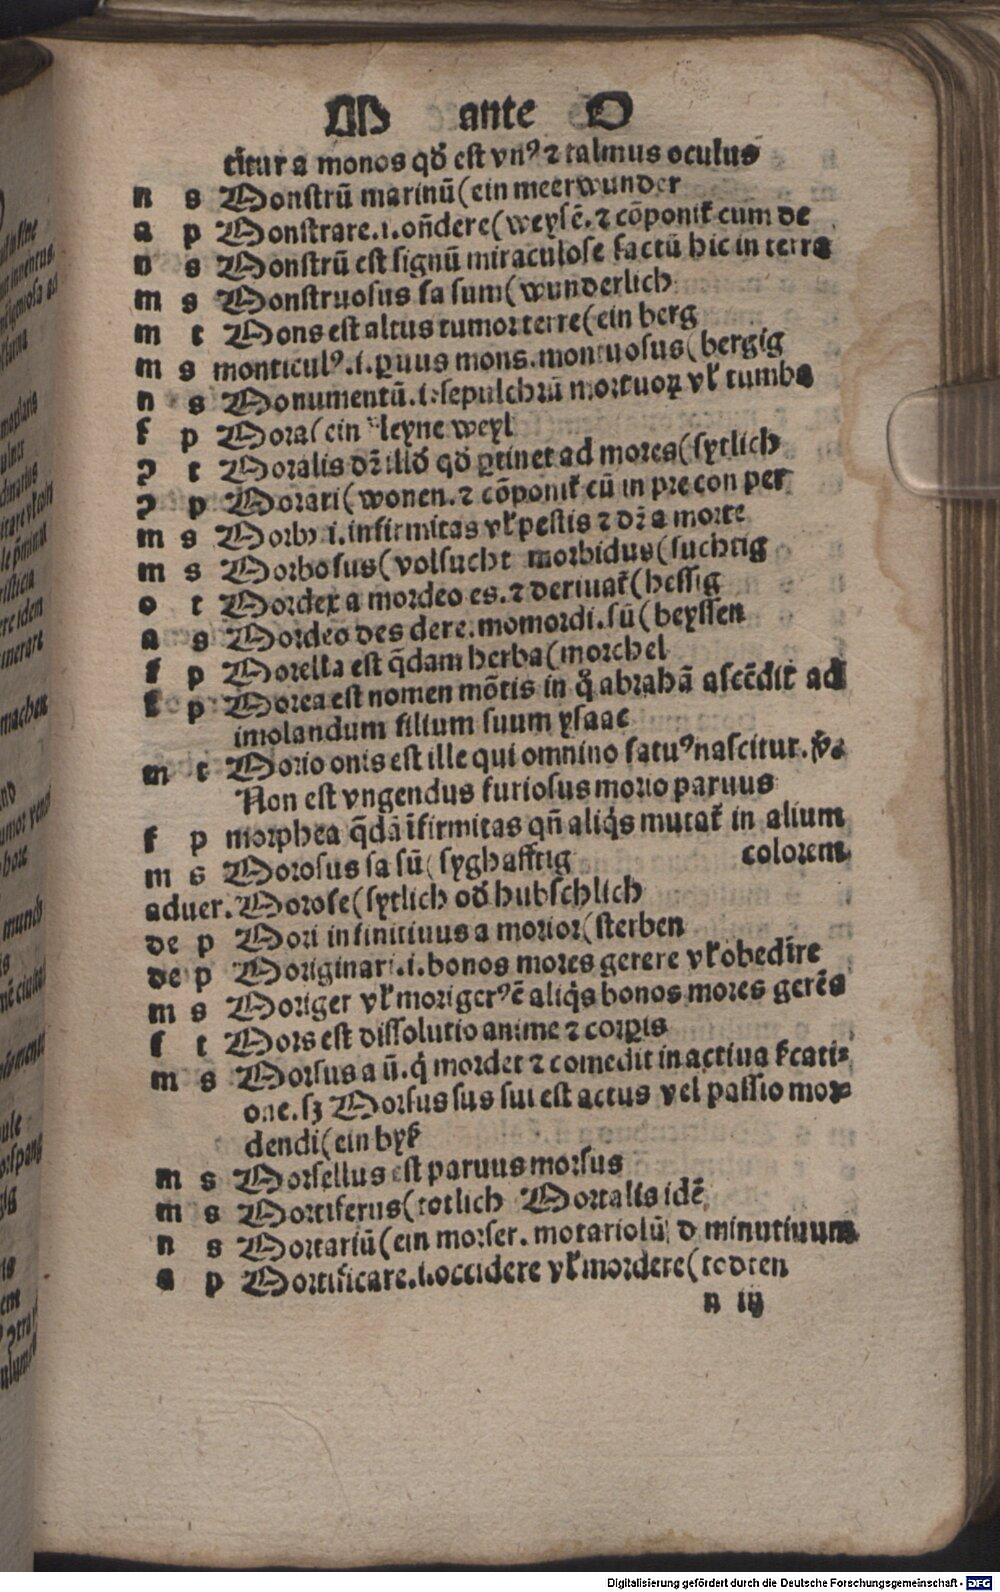 M ante O
citur a monos qď est vnꝰ ⁊ talmus oculus
n s Monstrū marinū (ein meerwunder
a p Monstrare .i. oñdere (weysē. ⁊ cōponit̉ cum de
n s Monstrū est signū miraculose factū hic in terra
m s Monstruosus sa sum (wunderlich
m t Mons est altus tumor terre (ein berg
m s monticulꝰ .i. ꝑuus mons. montuosus (bergig
n s Monumentū .i. sepulchrū mortuoꝝ vł tumba
f p Mora (ein kleyne weyl
ꝯ t Moralis dꝛ̄ illď qď ꝑtinet ad mores (sytlich
ꝯ p Morari (wonen. ⁊ cōponit̉ cū in pre con per
m s Morbꝰ .i. infirmitas vł pestis ⁊ dꝛ̄ a morte
m s Morbosus (volsucht morbidus (suchtig
o t Mordex a mordeo es. ⁊ deriuat̉ (hessig
a s Mordeo des dere. momordi. sū (beyssen
f p Morella est q̄dam herba (morchel
f p Morea est nomen mōtis in q̊ abrahā ascēdit ad
imolandum filium suum ysaac
m t Morio onis est ille qui omnino fatuꝰ nascitur. v̉ꝰ
Non est vngendus furiosus morio paruus
f p morphea q̄dā īfirmitas qñ aliq̇s mutat̉ in alium
colorem
m s Morosus sa sū (syghafftig
aduer. Morose (sytlich oď hubschlich
de p Mori infinitiuus a morior (sterben
de p Moriginari .i. bonos mores gerere vł obedire
m s Moriger vł morigerꝰ ē aliq̇s bonos mores gerēs
f t Mors est dissolutio anime ⁊ corꝑis
m s Morsus a ū. q̇ mordet ⁊ comedit in actiua ſcati⸗
one. sꝫ Morsus sus sui est actus vel passio mor⸗
dendi (ein byß
m s Morsellus est paruus morsus
m s Mortiferus (totlich Mortalis idē
n s Mortariū (ein morser. motariolū d minutiuum
a p Mortificare .i. occidere vł mordere (todten
n iij
Digitalisierung gefördert durch die Deutsche Forschungsgemeinschaft - DFG